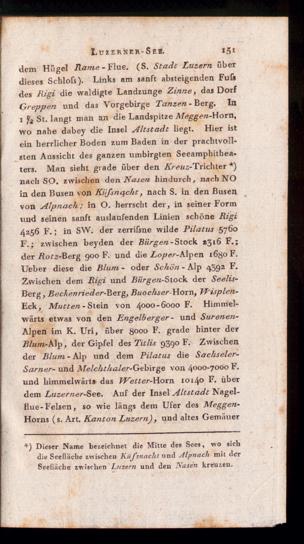 LUZERNER-SEE. 151
dem Hügel Rame-Flue. (S. Stadt Luzern über
dieses Schloſs). Links am sanft absteigenden Fuſs
des Rigi die waldigte Landzunge Zinne, das Dorf
Greppen und das Vorgebirge Tanzen-Berg. In
1 ½ St. langt man an die Landspitze Meggen-Horn,
wo nahe dabey die Insel Altstadt liegt. Hier ist
ein herrlicher Boden zum Baden in der prachtvoll-
sten Aussicht des ganzen umbirgten Seeamphithea-
ters. Man sieht grade über den Kreuz-Trichter *)
nach SO. zwischen den Nasen hindurch, nach NO
in den Busen von Küſsnacht, nach S. in den Busen
von Alpnach; in O. herrscht der, in seiner Form
und seinen sanft auslaufenden Linien schöne Rigi
4256 F.; in SW. der zerriſsne wilde Pilatus 5760
F.; zwischen beyden der Bürgen-Stock 2316 F.;
der Rotz-Berg 900 F. und die Loper-Alpen 1680 F.
Ueber diese die Blum- oder Schön-Alp 4392 F.
Zwischen dem Rigi und Bürgen-Stock der Seelis-
Berg, Beckenrieder-Berg, Buochser-Horn, Wisplen-
Eck, Mutten-Stein von 4000-6000 F. Himmel-
wärts etwas von den Engelberger- und Surenen-
Alpen im K. Uri, über 8000 F. grade hinter der
Blum-Alp, der Gipfel des Titlis 9390 F. Zwischen
der Blum-Alp und dem Pilatus die Sachseler-
Sarner- und Melchthaler-Gebirge von 4000-7000 F.
und himmelwärts das Wetter-Horn 10140 F. über
dem Luzerner-See. Auf der Insel Altstadt Nagel-
flue-Felsen, so wie längs dem Ufer des Meggen-
Horns (s. Art. Kanton Luzern), und altes Gemäuer
*) Dieser Name bezeichnet die Mitte des Sees, wo sich
die Seefläche zwischen Küſsnacht und Alpnach mit der
Seefläche zwischen Luzern und den Nasen kreuzen.